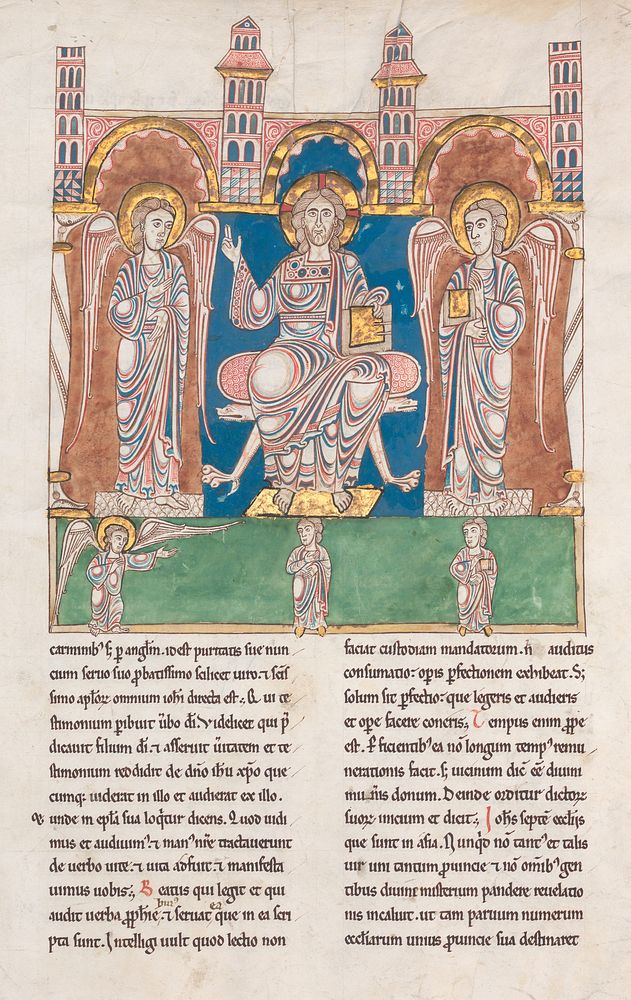 carminib' s; p angl̄m. id est puritatis sue nun
cium seruo suo p̱batissimo scilicet uiro. ⁊ sc̄is
simo apl̄oꝝ omnium ioh̄i directa est; Qui te
stimonium p̱ibuit ūbo dī. Videlicet qui p̄
dicauit filium dī. ⁊ asseruit ūitatem et te
stimonium reddidit de dn̄o ih̄u xp̄o que
cumq; uiderat in illo et audierat ex illo.
unde in epl̄a sua loq̄tur dicens. Quod uidi
mus et audiuim'. ⁊ man' nr̄e tractauerunt
de uerbo uite. ⁊ uita adfuit. ⁊ manifesta
uimus uobis; Beatus qui legit et qui
audit uerba p̱ph̄ie. ⁊ seruat que in ea scri
pta sunt. Intelligi uult quod lectio non
faciat custodiam mandatorum. n̄ auditus
consumatio. operis p̱fectionem exhibeat. S;
solum sit p̱fectio. que legeris et audieris
et ope facere coneris; Tempus enim p̱pe
est. P̱ficientib' ea nō longum temp' remu
nerationis facit. s; uicinum dic̄ eē diuini
mun̄is donum. Deinde orditur dictoꝝ
suoꝝ inicium et dicit; Ioh̄s septē ecclīis
que sunt in asia. Nunq̇d nō tant' et talis
uir uni tantum p̱uincie ⁊ nō om̄ib' gen
tibus diuinū misterium pandere reuelatio
nis incaluit. ut tam paruum numerum
eccl̄iarum unius p̱uincie sua destinaret